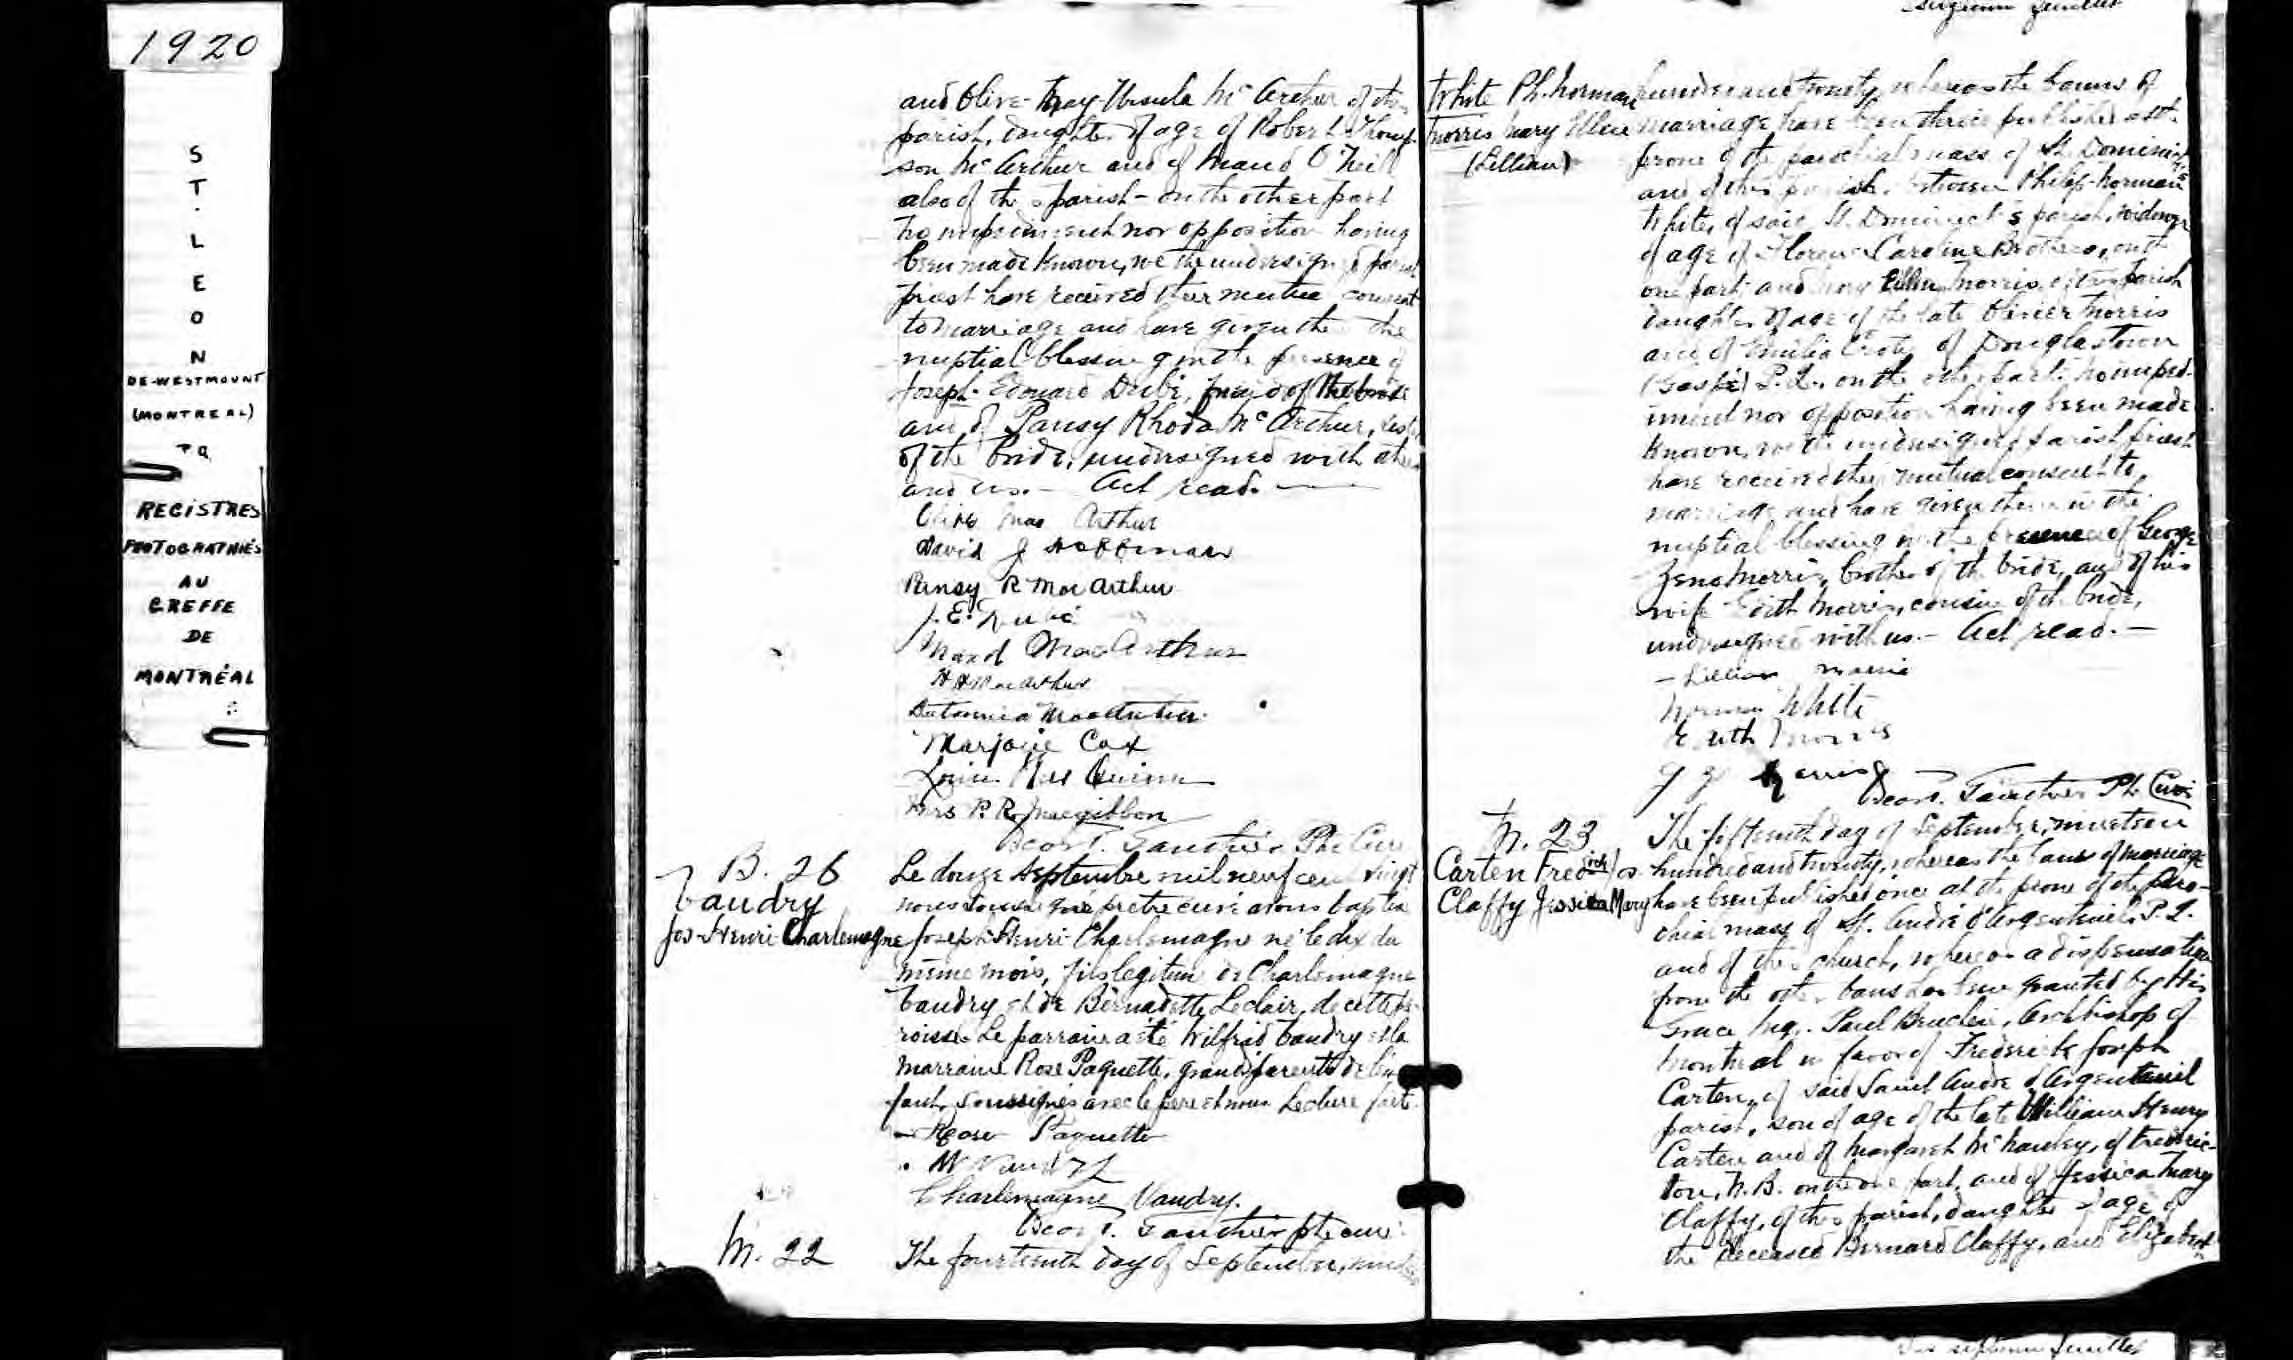 1920
S
T.
L
E
O
N
DE-WESTMOUNT
(MONTREAL)
P Q
REGISTRES
PHOTOGRAPHIÉS
AU
GREFFE
DE
MONTRÉAL
and Olive May Ursula McArthur of this
parish, daughter of age of Robert Thomp-
son McArthur and of Maud O'Neil
also of this parish - on the other part
No impediment nor opposition having
been made known, we the undersigned parish
priest have received their mutual consent
to marriage and have given them the
nuptial blessing in the presence of
Joseph Edouard Dubé, friend of the bride
and of Pansy Rhoda McArthur, sister
of the bride, undersigned with others
and us. - Act read. -
Olive Mac Arthur
David J
Pansy R MacArthur
J. E. Dubé
Maud MacArthur
MacArthur
MacArthur
Marjorie Cox
Mrs P. R. Macgibbon
Oscar T. Gauthier Ptr Curé
B. 26
Vaudry
Jos-Henri Charlemagne
Le douze septembre mil neuf cent vingt
nous soussigné prêtre curé avons baptisé
Joseph Henri Charlemagne né le dix du
même mois, fils légitime de Charlemagne
Vaudry et de Bernadette Leclair, de cette pa-
roisse. Le parrain a été Wilfrid Vaudry et la
marraine Rose Paquette, grands parents de l'en-
fant, soussignés avec le père et nous. Lecture faite.
Rose Paquette
W Vaudry
Charlemagne Vaudry.
Oscar T. Gauthier ptr curé
M. 22
The fourteenth day of September, nineteen
White Ph. Norman
Morris Mary Ellen
(Lillian)
hundred and twenty, whereas the banns of
marriage have been thrice published at the
prone of the parochial mass of St. Dominick's
and of this parish, between Philip Norman
White, of said St. Dominick's parish, widower
of age of Florence Caroline Brothers, on the
one part and Mary Ellen Morris, of this parish
daughter of age of the late Olivier Morris
and of Emilia of Douglastown
(Gaspé) P. Q., on the other part. No imped-
iment nor opposition having been made
known, we the undersigned parish priest
have received their mutual consent to
marriage and have given them the
nuptial blessing in the presence of George
Zeno Morris, brother of the bride, and of his
wife Edith Morris, cousin of the bride,
undersigned with us. - Act read. -
Lillian Morris
Norman White
Edith Morris
G Z Morris
Oscar T. Gauthier Ptr Curé
M. 23
Carten Fredrick Jos
Claffy Jessica Mary
The fifteenth day of September, nineteen
hundred and twenty, whereas the bans of marriage
have been published once at the prone of the paro-
chial mass of St. André d'Argenteuil P. Q.
and of this church, whereas a dispensation
from the other bans has been granted by His
Grace Mgr. Paul Bruchési, Archbishop of
Montreal in favor of Frederick Joseph
Carten, of said Saint André d'Argenteuil
parish, son of age of the late William Henry
Carten and of Margaret McNauley, of Frederic-
ton, N. B. on the one part, and of Jessica Mary
Claffy, of this parish, daughter of age of
the deceased Bernard Claffy, and Elizabeth